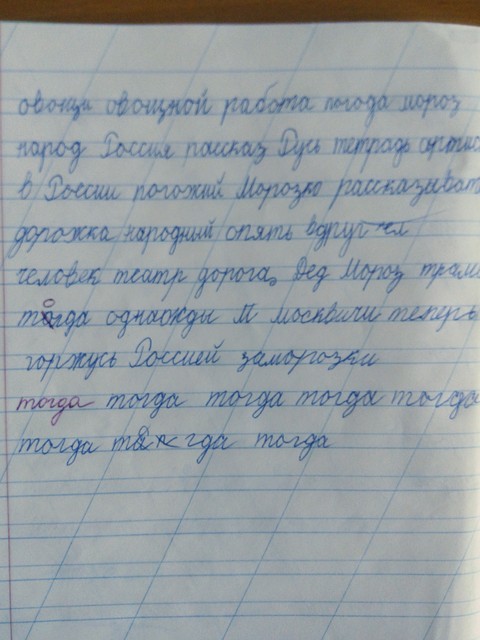 овощи овощной работа погода мороз
народ Россия рассказ Русь тетрадь
в России погожий Морозко рассказыват
дорожка народный опять вдруг
человек театр дорога. Дед Мороз трам
тогда однажды М москвичи теперь
горжусь Россией заморозки
тогда тогда тогда тогда тогда
тогда гда тогда